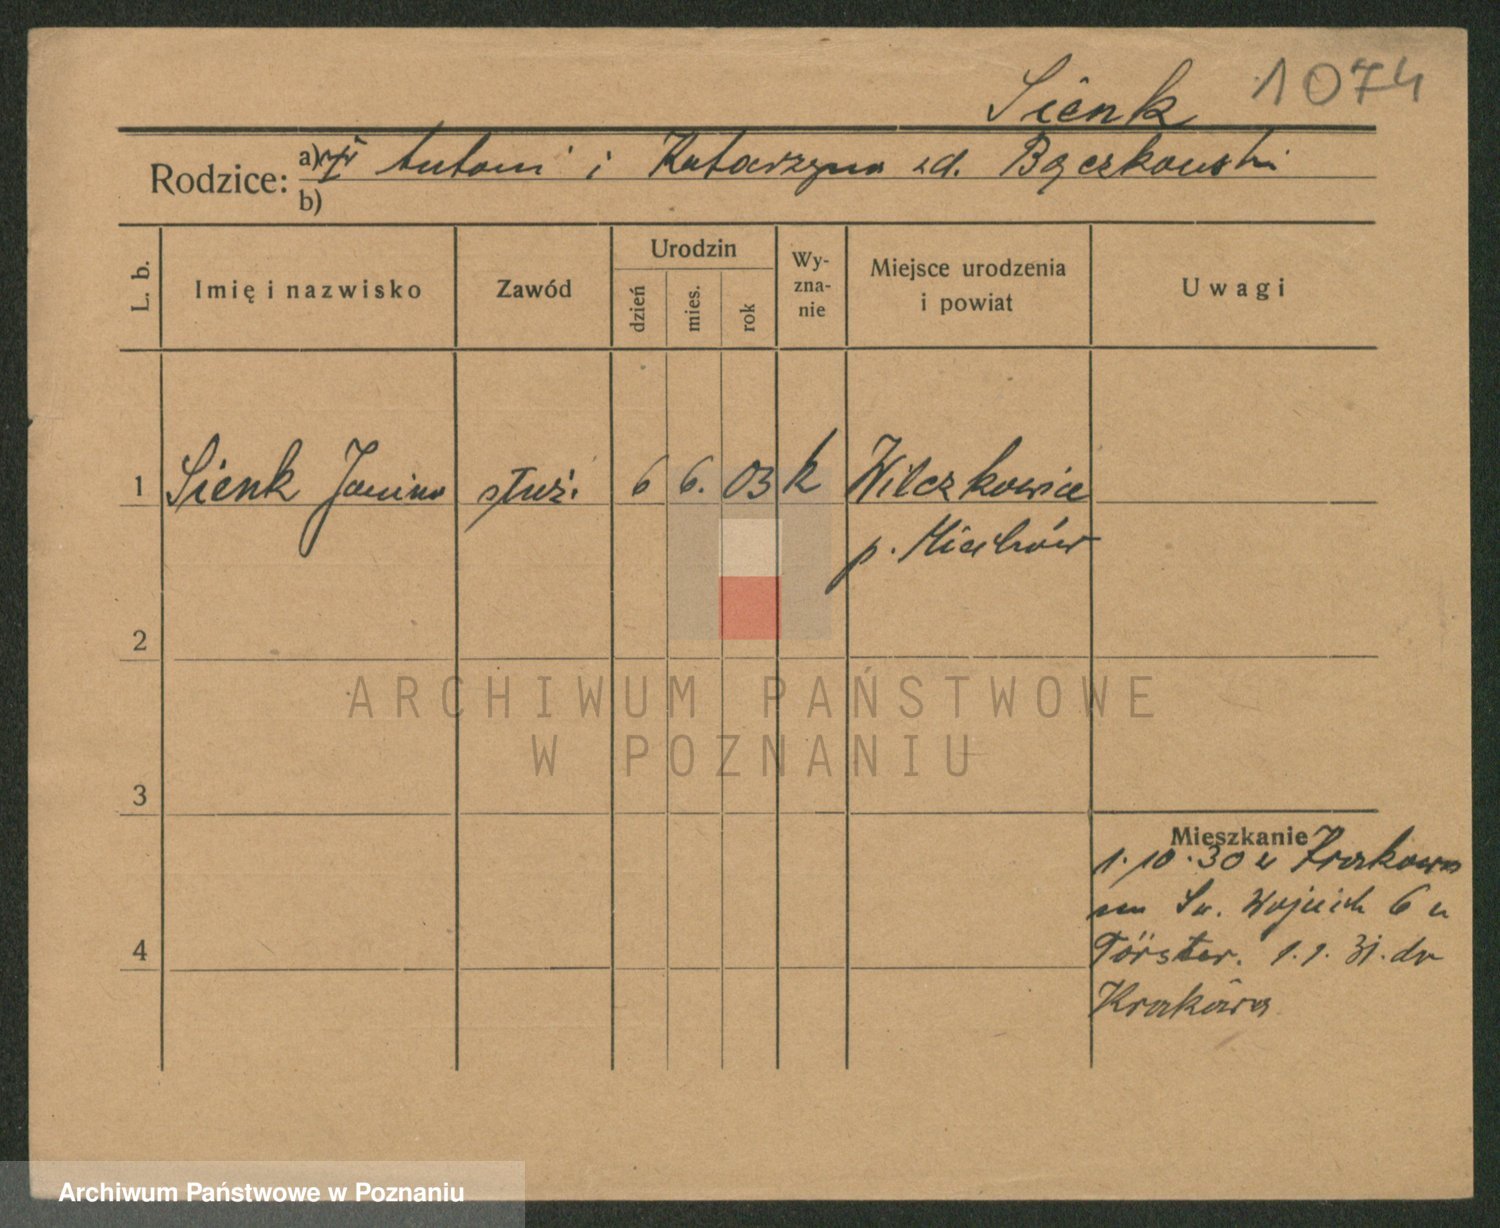 Sienk 1074
Rodzice: a) Antoni i Katarzyna zd. Bączkowski
b)
L. b. Imię i nazwisko Zawód Urodzin dzień mies. rok Wy-zna-nie Miejsce urodzenia i powiat Uwagi
1 Sienk Janina służ. 6 6. 03 k Wilczkowice
p. Miechów
2
ARCHIWUM PAŃSTWOWE
W POZNANIU
3
Mieszkanie
1.10.30 z Krakowa
na Św. Wojciech 6 u
Förster. 1.1.31. do
Krakowa
4
Archiwum Państwowe w Poznaniu